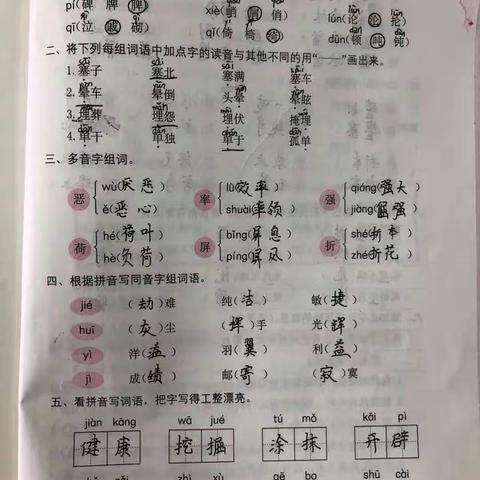 pí(碑 牌 脾) xiè(峭 俏) lún(论 沦 抡)
qì(泣 砌) qǐ(倚 椅 绮) dùn(顿 盹 钝)
二、将下列每组词语中加点字的读音与其他不同的用“——”画出来。
1.塞子 塞北 塞满 塞车
2.晕车 晕倒 头晕 晕眩
3.埋葬 埋怨 埋伏 掩埋
4.单干 单独 单于 孤单
三、多音字组词。
恶 wù(厌恶) 率 lǜ(效率) 强 qiáng(强大)
ě(恶心) shuài(率领) jiàng(倔强)
荷 hé(荷叶) 屏 bǐng(屏息) 折 shé(折本)
hè(负荷) píng(屏风) zhé(折花)
四、根据拼音写同音字组词语。
jié (劫)难 纯(洁) 敏(捷)
huī (灰)尘 (挥)手 光(辉)
yì 洋(溢) 羽(翼) 利(益)
jì 成(绩) 邮(寄) (寂)寞
五、看拼音写词语，把字写得工整漂亮。
jiàn kāng wā jué tú mǒ kāi pì
健康 挖掘 涂抹 开辟
zhì xù gē bo shū cài